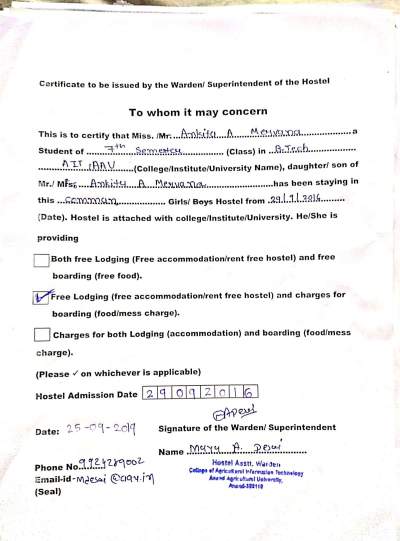 Certificate to be issued by the Warden/ Superintendent of the Hostel
To whom it may concern
This is to certify that Miss. /Mr. Ankita A Mervana a
Student of 7th Semester (Class) in B.Tech
AIT, AAU (College/Institute/University Name), daughter/ son of
Mr./ Mrs. Ankita A Mervana has been staying in
this common Girls/ Boys Hostel from 29/9/2016
(Date). Hostel is attached with college/institute/University. He/She is
providing
Both free Lodging (Free accommodation/rent free hostel) and free
boarding (free food).
✓ Free Lodging (free accommodation/rent free hostel) and charges for
boarding (food/mess charge).
Charges for both Lodging (accommodation) and boarding (food/mess
charge).
(Please ✓ on whichever is applicable)
Hostel Admission Date 29092016
Date: 25-09-2019 Signature of the Warden/ Superintendent
Name Maya A. Desai
Phone No. 9924289002 Hostel Asstt. Warden
College of Agricultural Information Technology
Email-id- mdesai@aau.in Anand Agricultural University,
(Seal) Anand-388110